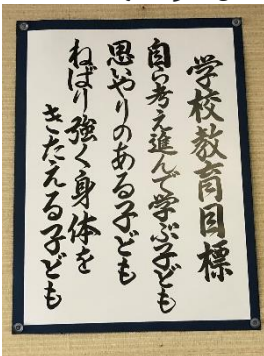 学校教育目標
自ら考え進んで学ぶ子ども
思いやりのある子ども
ねばり強く身体を
きたえる子ども